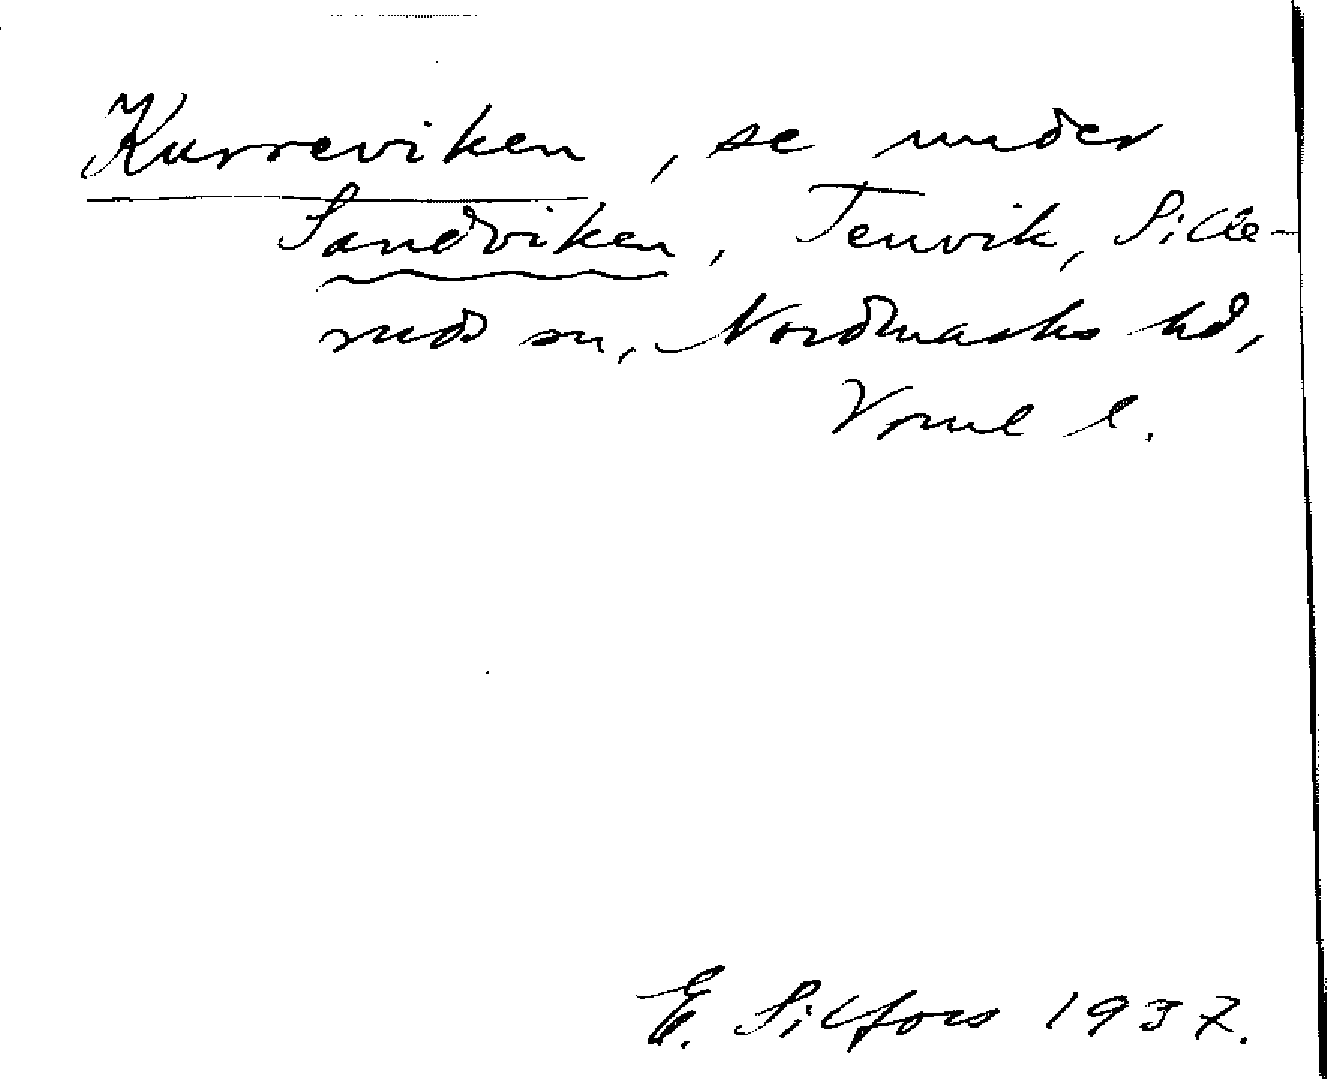 Kurreviken, se under
Sandviken, Tenvik, Sille-
ruds sn, Nordmarks hd,
Vrml l.
E. Silfors 1937.